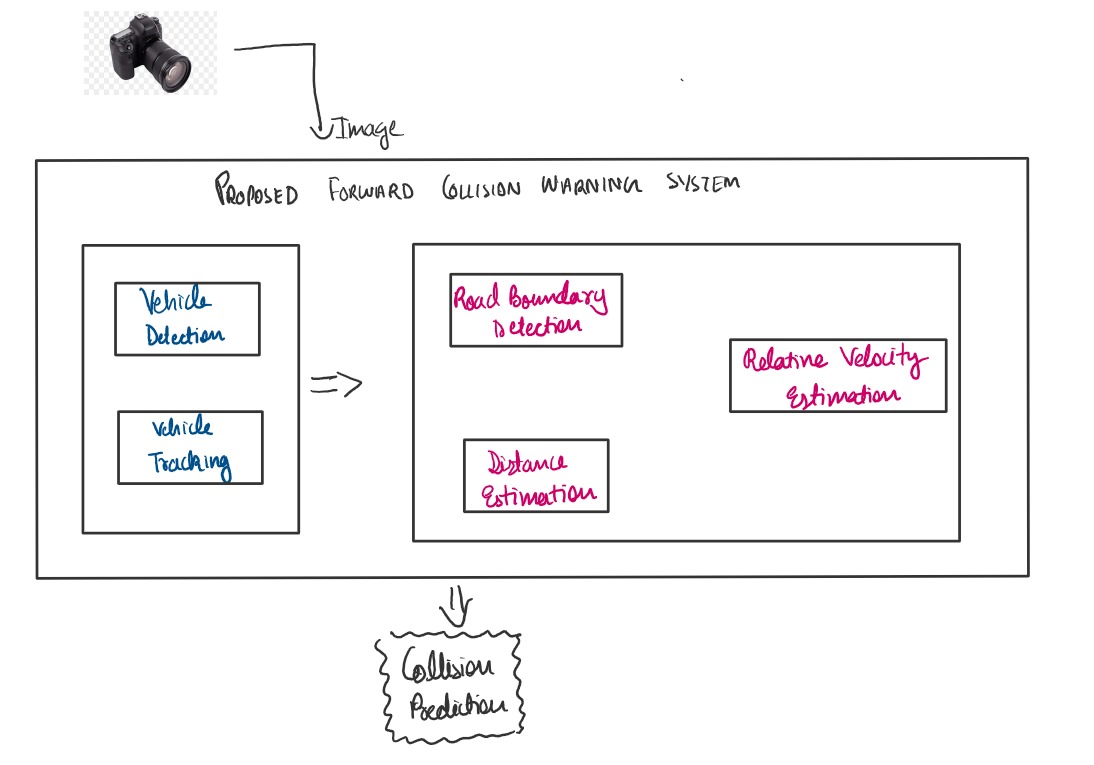 Image
PROPOSED FORWARD COLLISION WARNING SYSTEM
Vehicle
Detection
Vehicle
Tracking
Road Boundary
Detection
Distance
Estimation
Relative Velocity
Estimation
Collision
Prediction